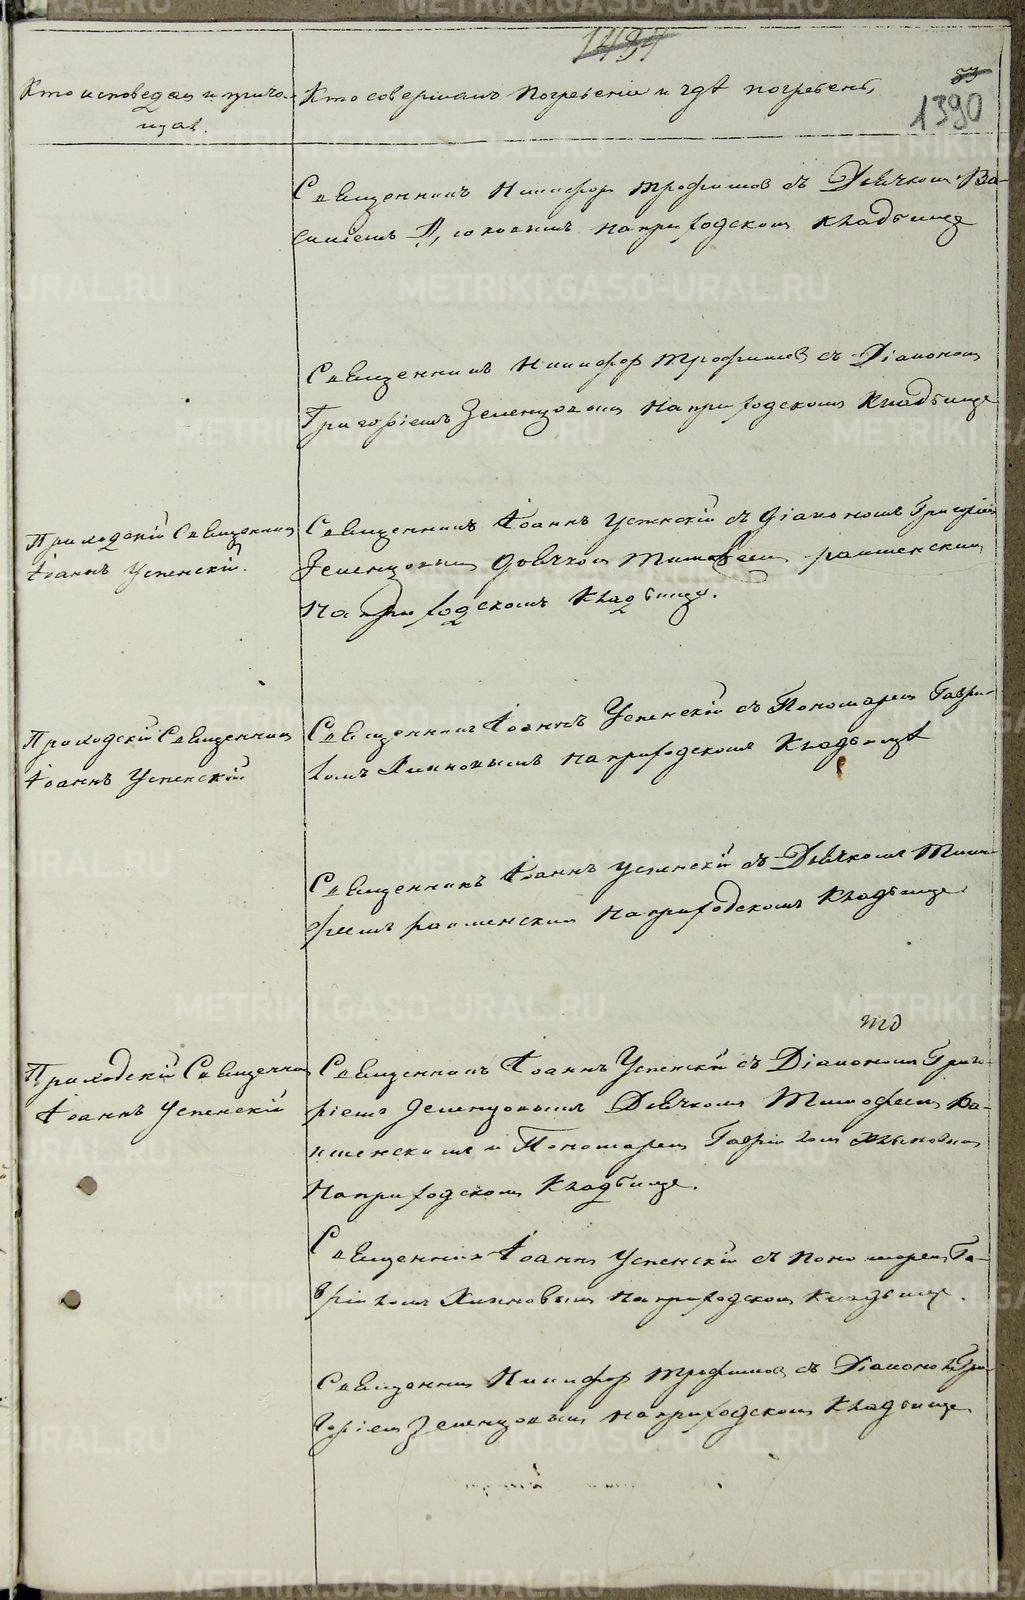 1494
33
1390
Кто исповедал и приоб-
щал.
Кто совершалъ погребеніе и гдѣ погребенъ,
Священникъ Никифор Трофимов съ Дьячкомъ Ва-
силіемъ на приходскомъ кладбище
Священникъ Никифор Трофимов съ Діакономъ
Григоріемъ Зеленцовым на приходскомъ кладбище
Приходскій Священникъ
Іоаннъ Успенскій.
Священникъ Іоаннъ Успенскій съ діакономъ Григоріем
Зеленцовым дьячком Тимофеем раменским
на приходскомъ кладбище.
Приходскій Священникъ
Іоаннъ Успенскій
Священникъ Іоаннъ Успенскій съ Пономарем Гаври-
ломъ Хлыновымъ на приходскомъ кладбищѣ
Священникъ Іоаннъ Успенскій съ Дьячкомъ Тимо-
феемъ раменским на приходскомъ кладбище
Приходскій Священникъ
Іоаннъ Успенскій
Священникъ Іоаннъ Успенскій съ Діакономъ Григо-
ріемъ Зеленцовымъ Дьячкомъ Тимофеем Ра-
менскимъ и Пономарем Гавріилом Хлыновым
на приходском кладбище.
Священник Іоаннъ Успенскій съ пономарем Га-
вріиломъ Хлыновым на приходском кладбище.
Священник Никифор Трофимов съ Діаконом Гри-
горіем Зеленцовым на приходском кладбище
METRIKI.GASO-URAL.RU